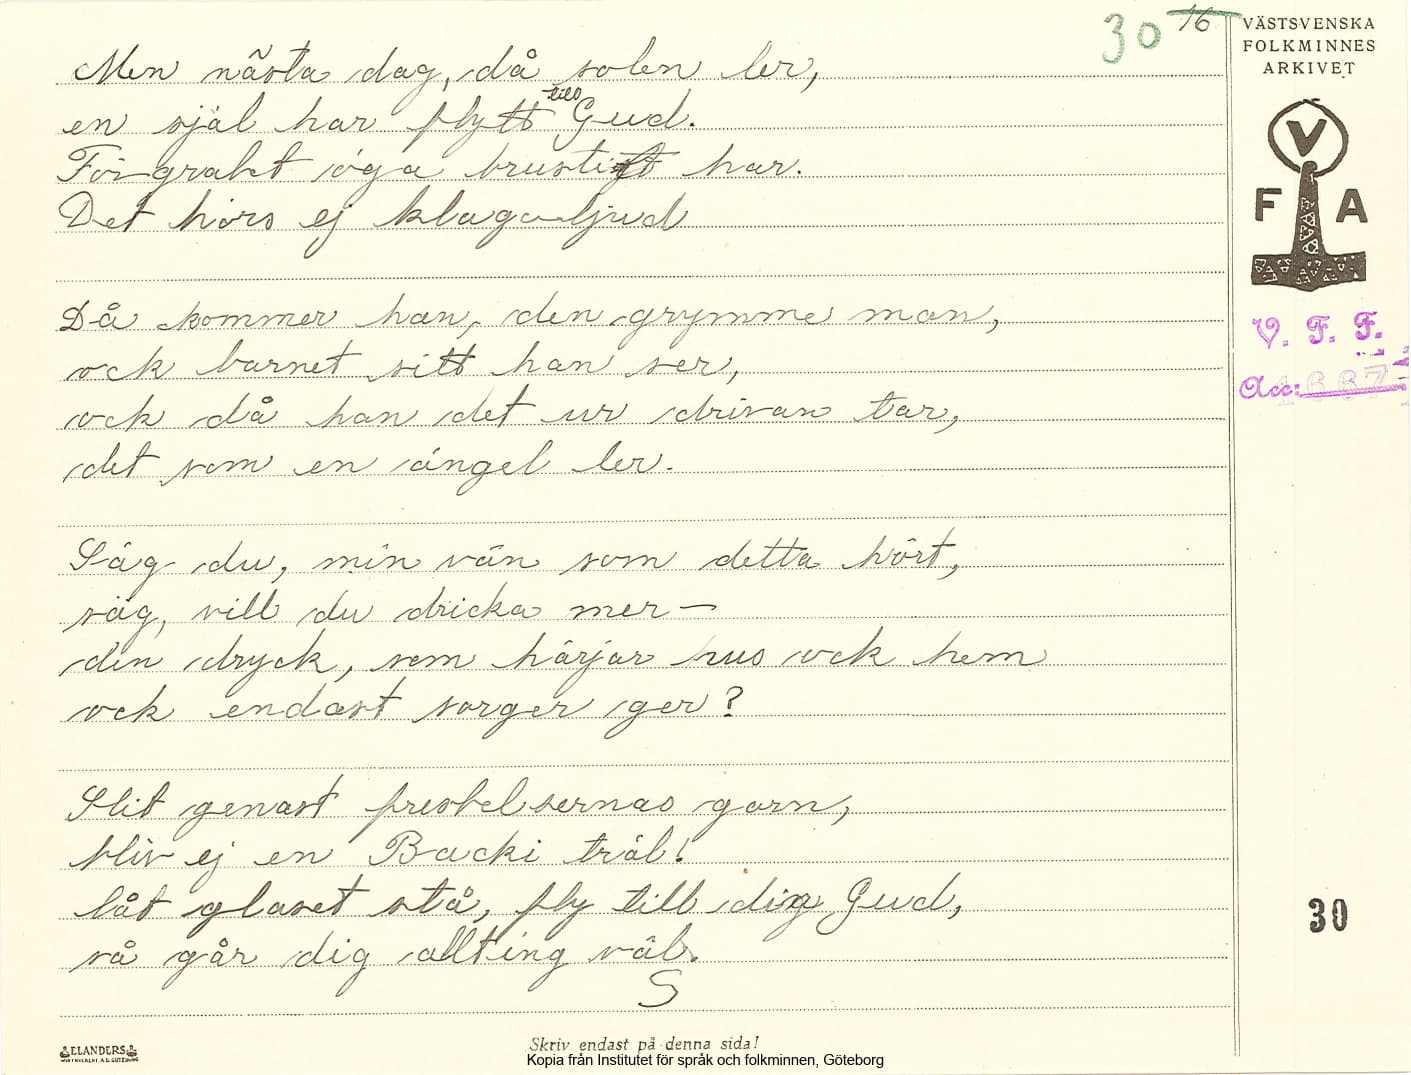 30 16
VÄSTSVENSKA
FOLKMINNES
ARKIVET
V
F A
V. F. F.
Acc: 1667
Men nästa dag, då solen ler,
en själ har flytt till Gud.
Förgrabt öga brustit har.
Det hörs ej klagoljud
Då kommer han, den grymme man,
ock barnet sitt han ser,
ock då han det ur drivan tar,
det som en ängel ler.
Säg du, min vän som detta hört,
säg, vill du dricka mer —
den dryck, som härjar hus ock hem
ock endast sorger ger?
Slit genast frestelsernas garn,
bliv ej en Backi träl!
låt glaset stå, fly till din Gud,
så går dig allting väl.
S
30
ELANDERS
Skriv endast på denna sida!
Kopia från Institutet för språk och folkminnen, Göteborg